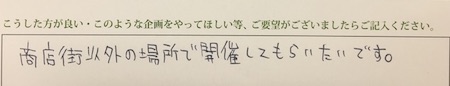 こうした方が良い・このような企画をやってほしい等、ご要望がございましたらご記入ください。
商店街以外の場所で開催してもらいたいです。